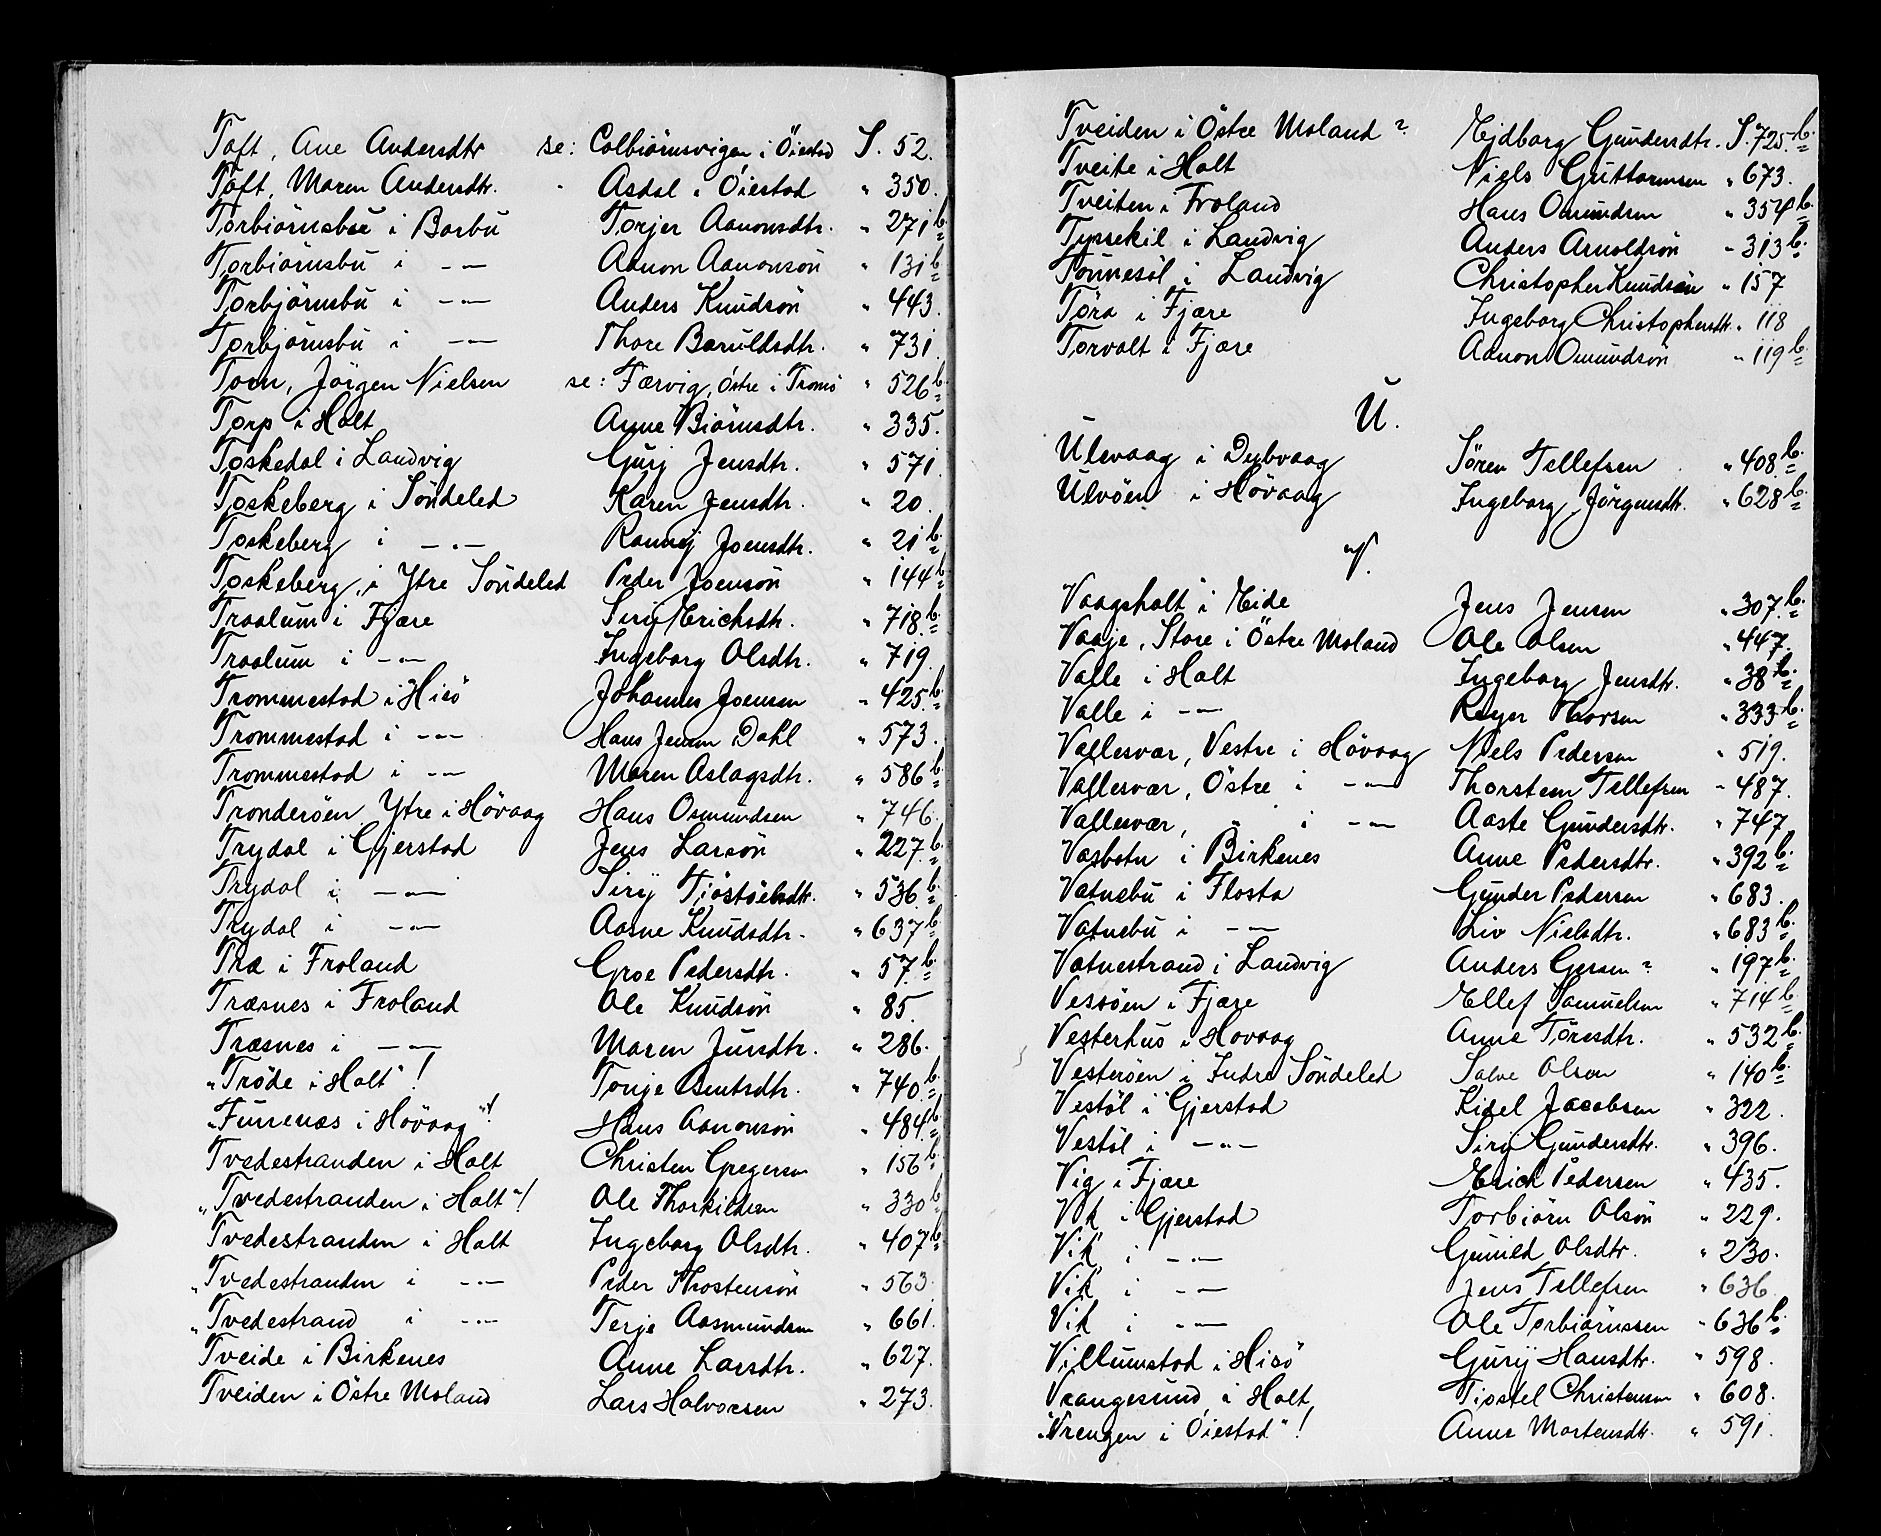 Toft, Ane Andersdtr se: Colbiörnsvigen i Öiestad S. 52.
Toft, Maren Andersdtr. " Asdal i Öiestad " 350.
Torbiörnsbu i Barbu Torjer Aanonsdtr. " 271 b.
Torbiörnsbu i -"- Aanon Aanonsön " 131 b.
Torbjörnsbu i -"- Anders Knudsön " 443.
Torbjörnsbu i -"- Thore Baruldsdtr. " 731.
Torn, Jörgen Nielsen se: Færvig, Östre i Tromö " 526 b.
Torp i Holt Anne Biörnsdtr. " 335.
Toskedal i Landvig Gurj Jensdtr. " 571.
Toskeberg i Söndeled Karen Jensdtr. " 20.
Toskeberg i -"- Rannej Joensdtr. " 21 b.
Toskeberg, i Ytre Söndeled Peder Joensön " 144 b.
Traalum i Fjære Sirij Erichsdtr. " 718 b.
Traalum i -"- Ingeborg Olsdtr. " 719.
Trommestad i Hisö Johannes Joensen " 425 b.
Trommestad i -"- Hans Jensen Dahl " 573.
Trommestad i -"- Maren Aslagsdtr. " 586 b.
Tronderöen, Ytre i Hövaag Hans Osmundsen " 746.
Trydal i Gjerstad Jens Larsön " 227 b.
Trydal i -"- Sirij Tjöstölsdtr. " 536 b.
Trydal i -"- Aasne Knudsdtr. " 637 b.
Træ i Froland Groe Pedersdtr. " 57 b.
Træsnes i Froland Ole Knudsön " 85.
Træsnes i -"- Maren Juusdtr. " 286.
"Tröde i Holt"! Tonje Bentsdtr. " 740 b.
"Furrenæs i Hövaag"! Hans Aanonsön " 484 b.
Tvedestranden i Holt Christen Gregersen " 156 b.
"Tvedestranden i Holt"! Ole Thorkildsen " 330 b.
Tvedestranden i Holt Ingeborg Olsdtr. " 407 b.
"Tvedestranden i -"- Peder Thostensön " 563.
"Tvedestrand i -"- Terje Aasmundsen " 661.
Tveide i Birkenes Anne Larsdtr. " 627.
Tveiden i Östre Moland Lars Halvorsen " 273.
Tveiden i Östre Moland? Ejdborg Gundersdtr. S. 725 b.
Tveite i Holt Niels Guttormsen " 673.
Tveiten i Froland Hans Omundsen " 354 b.
Tyssekil i Landvig Anders Arnoldsön " 313 b.
Tönnesöl i Landvig Christopher Knudsön " 157
Töra i Fjære Ingeborg Christophersdtr. " 118
Törvolt i Fjære Aanon Omundsön " 119 b.
U.
Ulevaag i Dybvaag Sören Tellefsen " 408 b.
Ulvöen i Hövaag Ingeborg Jörgensdtr. " 628 b.
V.
Vaagsholt i Eide Jens Jensen " 307 b.
Vaaje, Store i Östre Moland Ole Olsen " 447.
Valle i Holt Ingeborg Jensdtr. " 38 b.
Valle i -"- Reyer Thorsen " 333 b.
Vallesvær, Vestre i Hövaag Niels Pedersen " 519.
Vallesvær, Östre i -"- Thorstem Tellefsen " 487.
Vallesvær, " i -"- Aaste Gundersdtr. " 747
Vasbotn i Birkenes Anne Pedersdtr. " 392 b.
Vatnebu i Flosta Gunder Pedersen " 683.
Vatnebu i -"- Liv Nielsdtr. " 683 b.
Vatnestrand i Landvig Anders Gersen? " 197 b.
Vessöen i Fjære Ellef Samuelsen " 714 b.
Vesterhus i Hovaag Anne Töresdtr. " 532 b.
Vesteröen i Indre Söndeled Salve Olsen " 140 b.
Vestöl i Gjerstad Kidel Jacobsen " 322.
Vestöl i -"- Sirij Gundersdtr. " 396.
Vig i Fjære Erich Pedersen " 435.
Vik i Gjerstad Torbiörn Olsön " 229.
Vik i -"- Gunild Olsdtr. " 230.
Vik i -"- Jens Tellefsen " 636
Vik i -"- Ole Torbiörnssen " 636 b.
Villumstad i Hisö Gurij Hansdtr. " 598.
Vrangesund i Holt Tiostel Christensen " 608.
"Vrengen i Öiestad"! Anne Mortensdtr. " 591.